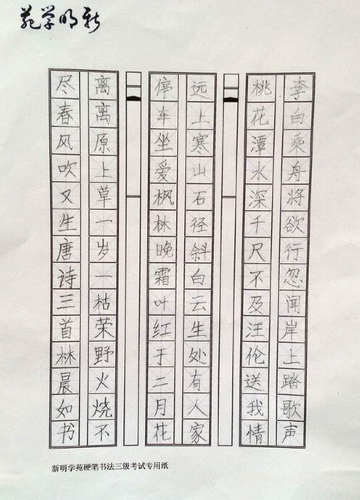 新明学苑
李白乘舟将欲行忽闻岸上踏歌声
桃花潭水深千尺不及汪伦送我情
远上寒山石径斜白云生处有人家
停车坐爱枫林晚霜叶红于二月花
离离原上草一岁一枯荣野火烧不
尽春风吹又生唐诗三首林晨如书
新明学苑硬笔书法三级考试专用纸